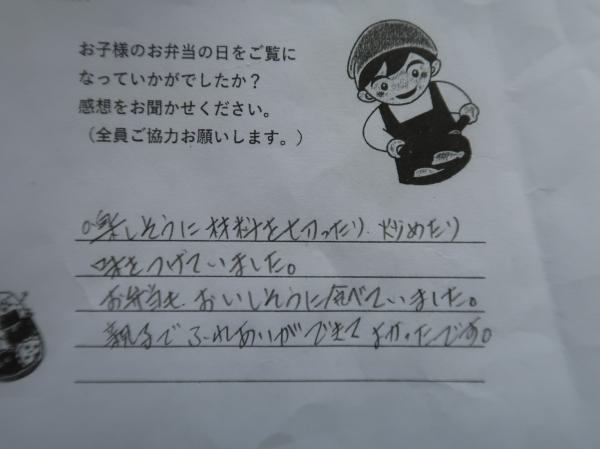 お子様のお弁当の日をご覧に
なっていかがでしたか？
感想をお聞かせください。
（全員ご協力お願いします。）
楽しそうに材料を切ったり 炒めたり
味をつけていました。
お弁当も おいしそうに食べていました。
親子で ふれあいができて よかったです。